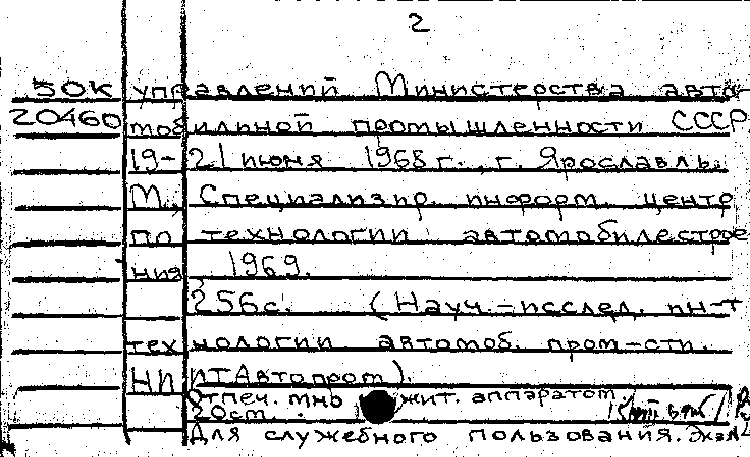 2
50К управлений Министерства авто-
20460 мобильной промышленности СССР
19-21 июня 1968 г., г. Ярославль.
М., Специализир. информ. центр
по технологии автомобилестрое
ния 1969.
256с. (Науч.-исслед. ин-т
технологии автомоб. пром-сти.
НИИТАвтопром).
Отпеч. мно жит. аппаратом
20 ст.
Для служебного пользования. Экз.